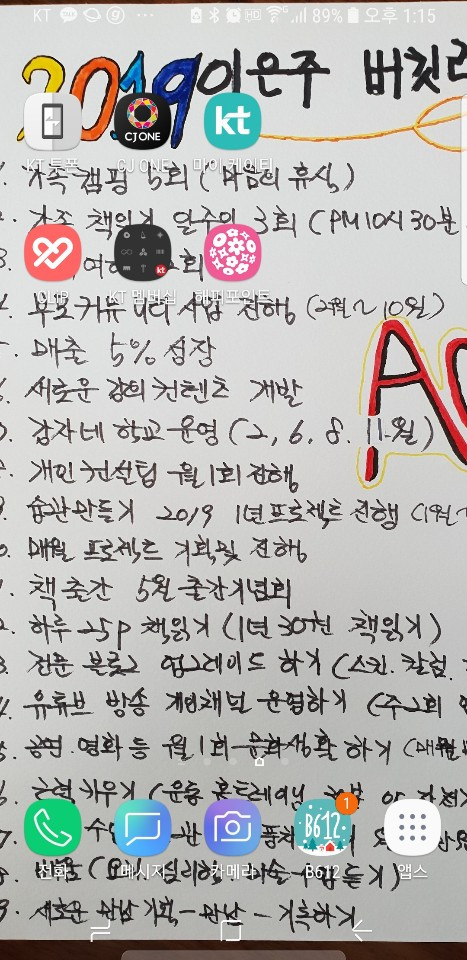 KT 89% 오후 1:15
2019 이은주 버킷리
KT 투폰 CJ ONE 마이 케이티
CJ ONE kt
가족캠핑 5회 (마음의 휴식)
가족 책읽기 일주일 3회 (PM10시 30분
회
CLiP KT 멤버십 해피포인트
kt
부모커뮤니티 사업 진행 (2월~10월)
매출 5% 성장
새로운 강의 컨텐츠 개발
감자네 학교 운영 (2, 6, 8. 11월)
개인 컨설팅 월1회 진행
습관만들기 2019 1년프로젝트 진행 (1월~
매월 프로젝트 기획및 진행
책출간 5월 출간기념회
하루 25P 책읽기 (1년 30권 책읽기)
전문 블로그 업그레이드 하기 (스킨. 칼럼.
유튜브 방송 개인채널 운영하기 (주2회
공연. 영화 등 월1회 문화생활 하기 (매월
근력키우기 (운동 홈트레이닝 or
B612 1
전화 메시지 카메라 B612 앱스
새로운 만남 기획 - 만남 - 기록하기